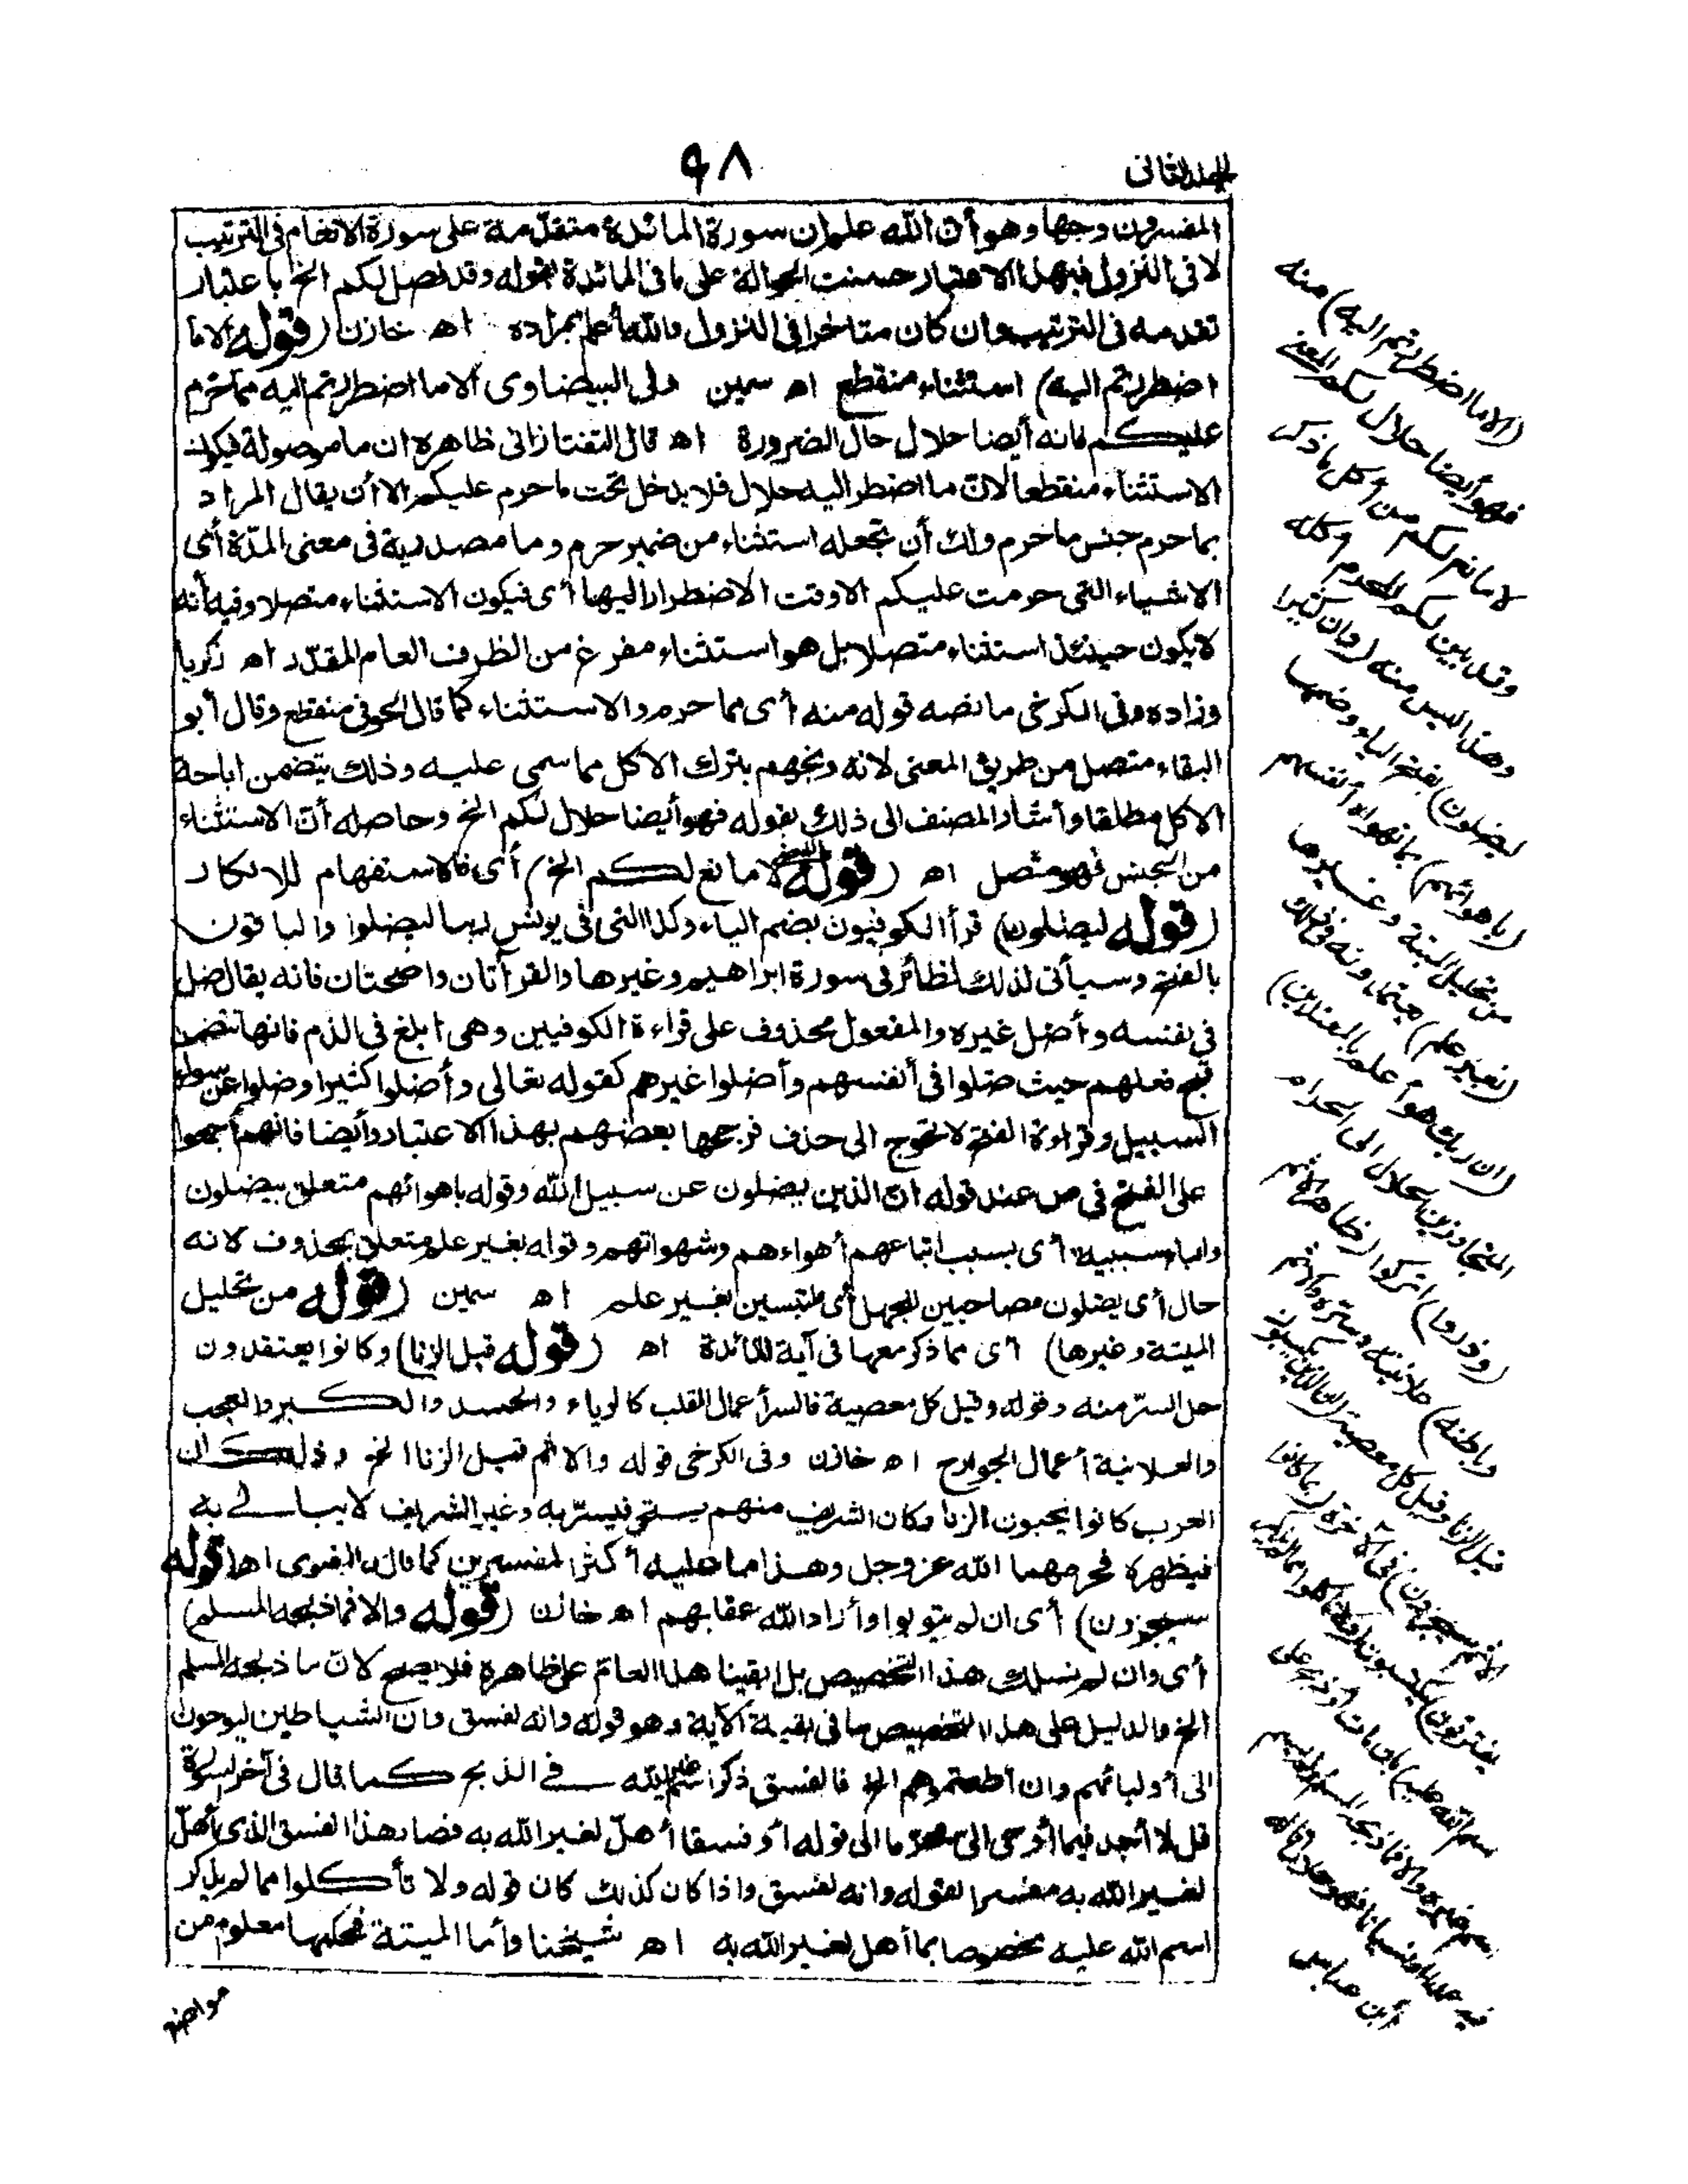 الجلد الثانى
٩٨
المفسرون وجها وهو أن الله علم ان سورة المائدة متقدّمة على سورة الانعام فى الترتيب
لا فى النزول فبهذا الاعتبار حسنت الحوالة على ما فى المائدة بقوله وقد فصل لكم الخ باعتبار
تقدمه فى الترتيب وان كان متاخرا فى النزول والله أعلم بمراده اه خازن (قوله الا ما
اضطررتم اليه) استثناء منقطع اه سمين وفى البيضاوى الا ما اضطررتم اليه مما حرم
عليكم فانه أيضا حلال حال الضرورة اه قال التفتازانى ظاهره ان ما موصولة فيكون
الاستثناء منقطعا لان ما اضطر اليه حلال فلا يدخل تحت ما حرم عليكم الا أن يقال المراد
بما حرم جنس ما حرم ولك أن تجعله استثناء من ضمير حرم وما مصدرية فى معنى المدّة أى
الاشياء التى حرمت عليكم الا وقت الاضطرار اليها أى فيكون الاستثناء متصلا وفيه أنه
لا يكون حينئذ استثناء متصلا بل هو استثناء مفرغ من الظرف العام المقدّر اه زكريا
وزاده وفى الكرخى ما نصه قوله منه أى مما حرم والاستثناء كما قال الحوفى منقطع وقال أبو
البقاء متصل من طريق المعنى لانه وبخهم بترك الاكل مما سمى عليه وذلك يتضمن اباحة
الاكل مطلقا وأشار المصنف الى ذلك بقوله فهو أيضا حلال لكم الخ وحاصله أن الاستثناء
من الجنس فهو متصل اه (قوله المعنى لا مانع لكم الخ) أى فالاستفهام للانكار
(قوله ليضلون) قرأ الكوفيون بضم الياء وكذا التى فى يونس ربنا ليضلوا والباقون
بالفتح وسيأتى لذلك نظائر فى سورة ابراهيم وغيرها والقرأتان واضحتان فانه يقال ضل
فى نفسه وأضل غيره والمفعول محذوف على قراءة الكوفيين وهى ابلغ فى الذم فانها تتضمن
قبح فعلهم حيث ضلوا فى أنفسهم وأضلوا غيرهم كقوله تعالى وأضلوا كثيرا وضلوا عن سواء
السبيل وقراءة الفتح لا تحوج الى حذف فرجحها بعضهم بهذا الاعتبار وأيضا فانهم أجمعوا
على الفتح فى ص عند قوله ان الذين يضلون عن سبيل الله وقوله باهوائهم متعلق بيضلون
والباء سببية أى بسبب اتباعهم أهواءهم وشهواتهم وقوله بغير علم متعلق بمحذوف لانه
حال أى يضلون مصاحبين للجهل أى ملتبسين بغير علم اه سمين (قوله من تحليل
الميتة وغيرها) أى مما ذكر معها فى آية المائدة اه (قوله قيل الزنا) وكانوا يعتقدون
حل السرّ منه وقوله وقيل كل معصية فالسر أعمال القلب كالرياء والحسد والكبر والعجب
والعلانية أعمال الجوارح اه خازن وفى الكرخى قوله والاثم قيل الزنا الخ وذلك أن
العرب كانوا يحبون الزنا وكان الشريف منهم يستحى فيسرّ به وغير الشريف لا يبالى به
فيظهره فحرمهما الله عز وجل وهذا ما عليه أكثر المفسرين كما قاله البغوى اه (قوله
سيجزون) أى ان لم يتوبوا وأراد الله عقابهم اه خازن (قوله والا فما ذبحه المسلم)
أى وان لم نسلك هذا التخصيص بل ابقينا هذا العام على ظاهره فلا يصح لان ما ذبحه المسلم
الخ والدليل على هذا التخصيص ما فى بقية الآية وهو قوله وانه لفسق وان الشياطين ليوحون
الى أوليائهم وان أطعتموهم الخ فالفسق ذكر اسم غير الله فى الذبح كما قال فى آخر السورة
قل لا أجد فيما أوحى الىّ محرّما الى قوله أو فسقا أهلّ لغير الله به فصار هذا الفسق الذى أهلّ
لغير الله به مفسرا لقوله وانه لفسق واذا كان كذلك كان قوله ولا تأكلوا مما لم يذكر
اسم الله عليه مخصوصا بما أهل لغير الله به اه شيخنا وأما الميتة فحكمها معلوم من
مواضع
(الا ما اضطررتم اليه) منه
فهو أيضا حلال لكم المعنى
لا مانع لكم من أكل ما ذكر
وقد بين لكم المحرم أكله
وهذا ليس منه (وان كثيرا
ليضلون) بفتح الياء وضمها
(باهوائهم) بما تهواه أنفسهم
من تحليل الميتة وغيرها
(بغير علم) يعتمدونه فى ذلك
(ان ربك هو أعلم بالمعتدين)
المتجاوزين الحلال الى الحرام
(وذروا) اتركوا (ظاهر الاثم
وباطنه) علانيته وسرّه والاثم
قيل الزنا وقيل كل معصية (ان الذين يكسبون
الاثم سيجزون) فى الآخرة (بما كانوا
يقترفون) يكتسبون (ولا تأكلوا مما لم يذكر
اسم الله عليه) بان مات أو ذبح على
اسم غيره والا فما ذبحه المسلم ولم يسم
فيه عمدا أو نسيانا فهو حلال قاله
ابن عباس